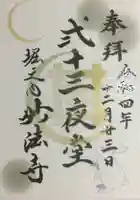 奉拝
令和四年
十二月廿三日
弐十三夜堂
堀之内
妙法寺